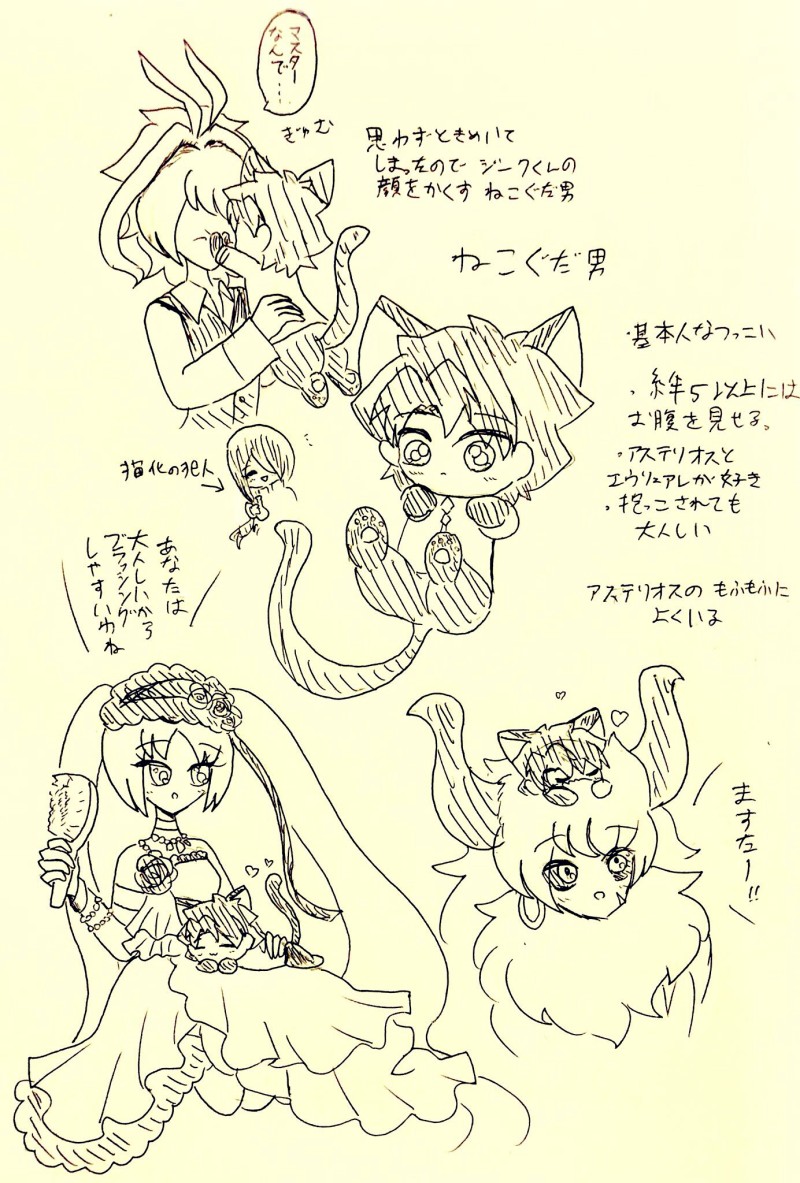 マスター
なんで…
ぎゅむ
思わずときめいて
しまったので ジークくんの
顔をかくす ねこぐだ男
ねこぐだ男
・基本人なつっこい
・絆5以上には
お腹を見せる。
・アステリオスと
エウリュアレが好き
・抱っこされても
大人しい
アステリオスの もふもふに
よくいる
猫化の犯人
あなたは
大人しいから
ブラッシング
しやすいわね
ますたー!!